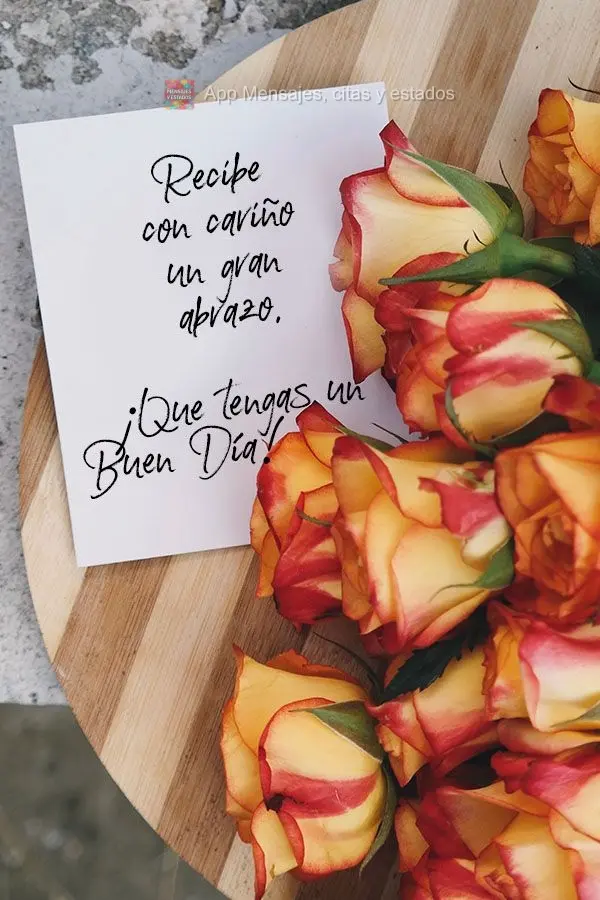 MENSAJES
Y ESTADOS
App Mensajes, citas y estados
Recibe
con cariño
un gran
abrazo.
¡Que tengas un
Buen Día!